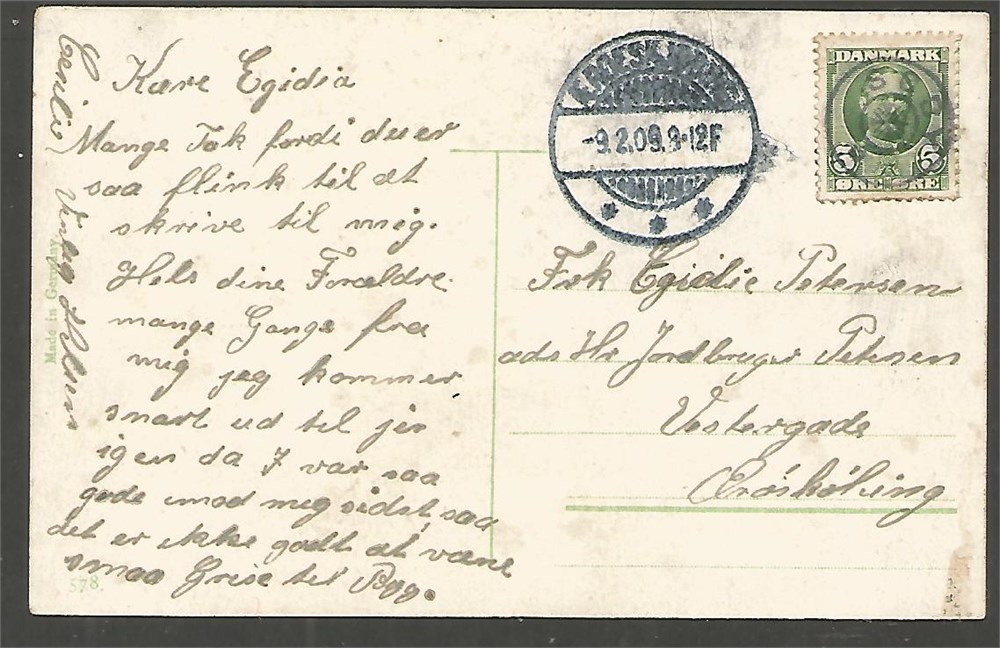 Kære Egidia
Mange Tak fordi du er
saa flink til at
skrive til mig.
Hels dine Forældre
mange Gange fra
mig jeg kommer
snart ud til jer
igen da I var saa
gode imod mig sidst, saa
det er ikke godt at være
smaa Grise til Ryg.
Venlig Hilsen
Cecilie
Made in Germany
578.
-9.2.09.9-12F
DANMARK
5 5
ØRE ØRE
Frk Egidie Petersen
ads Hr Jordbruger Petersen
Vestergade
Ærøskøbing